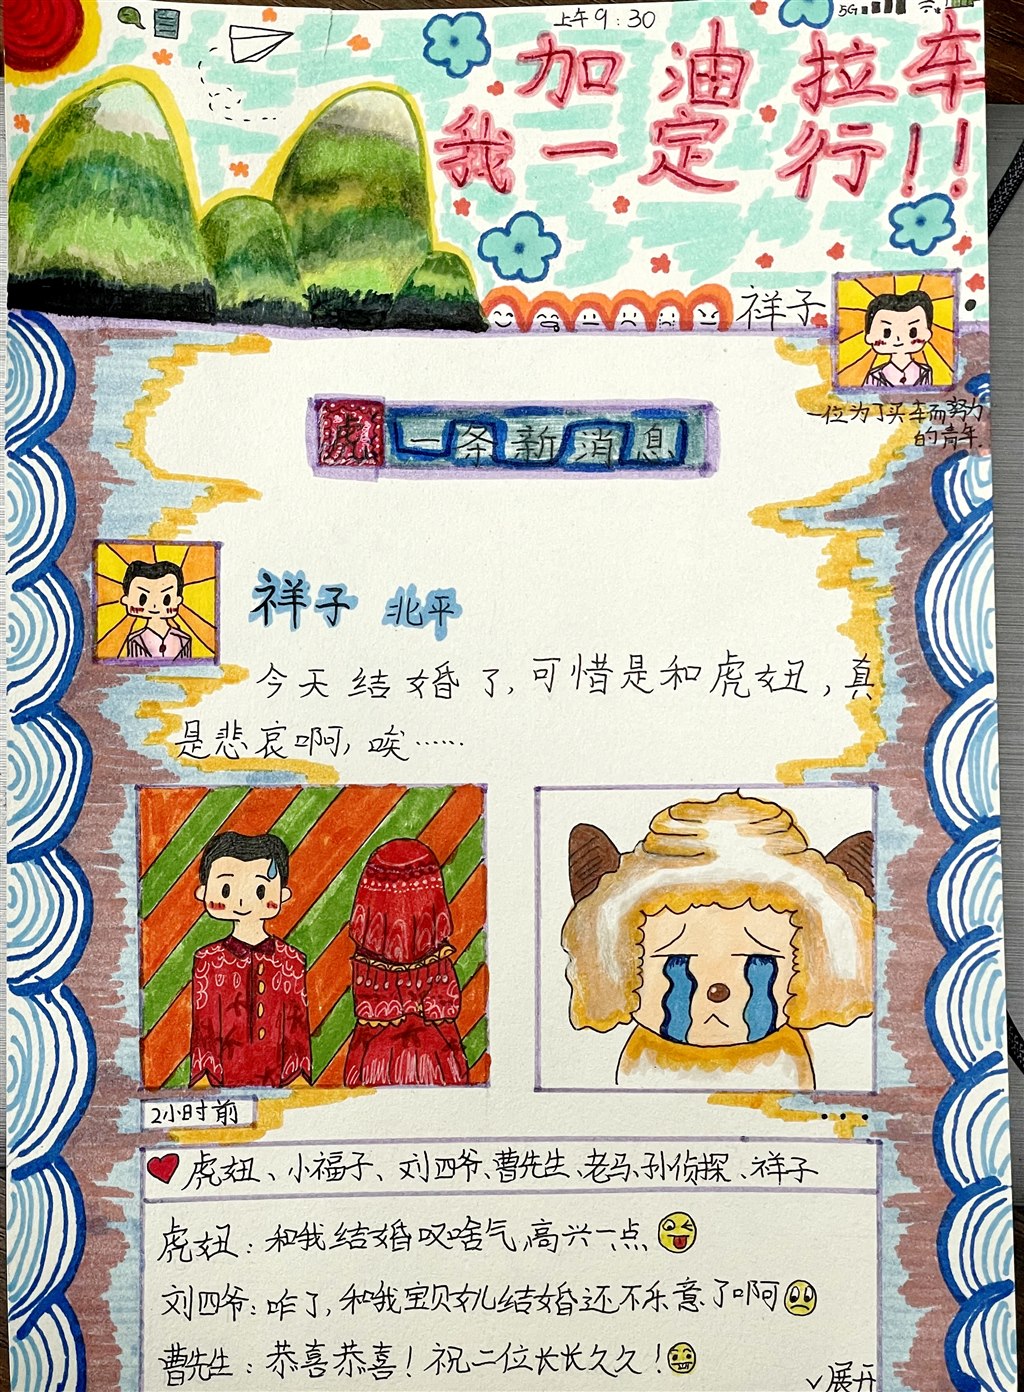 上午9:30
5G
加油拉车
我一定行!!
祥子
一位为了买车而努力
的青年.
虎 一条新消息
祥子 北平
今天结婚了,可惜是和虎妞,真
是悲哀啊,唉……
2小时前
虎妞、小福子、刘四爷、曹先生、老马、孙侦探、祥子
虎妞:和我结婚叹啥气,高兴一点
刘四爷:咋了,和我宝贝女儿结婚还不乐意了啊
曹先生:恭喜恭喜!祝二位长长久久!
展开